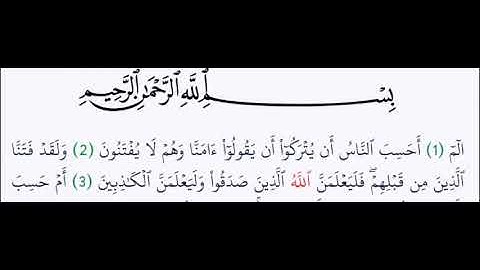 بِسْمِ اللَّهِ الرَّحْمَٰنِ الرَّحِيمِ
الٓمٓ (1) أَحَسِبَ ٱلنَّاسُ أَن يُتْرَكُوٓا۟ أَن يَقُولُوٓا۟ ءَامَنَّا وَهُمْ لَا يُفْتَنُونَ (2) وَلَقَدْ فَتَنَّا
ٱلَّذِينَ مِن قَبْلِهِمْ ۖ فَلَيَعْلَمَنَّ ٱللَّهُ ٱلَّذِينَ صَدَقُوا۟ وَلَيَعْلَمَنَّ ٱلْكَٰذِبِينَ (3) أَمْ حَسِبَ